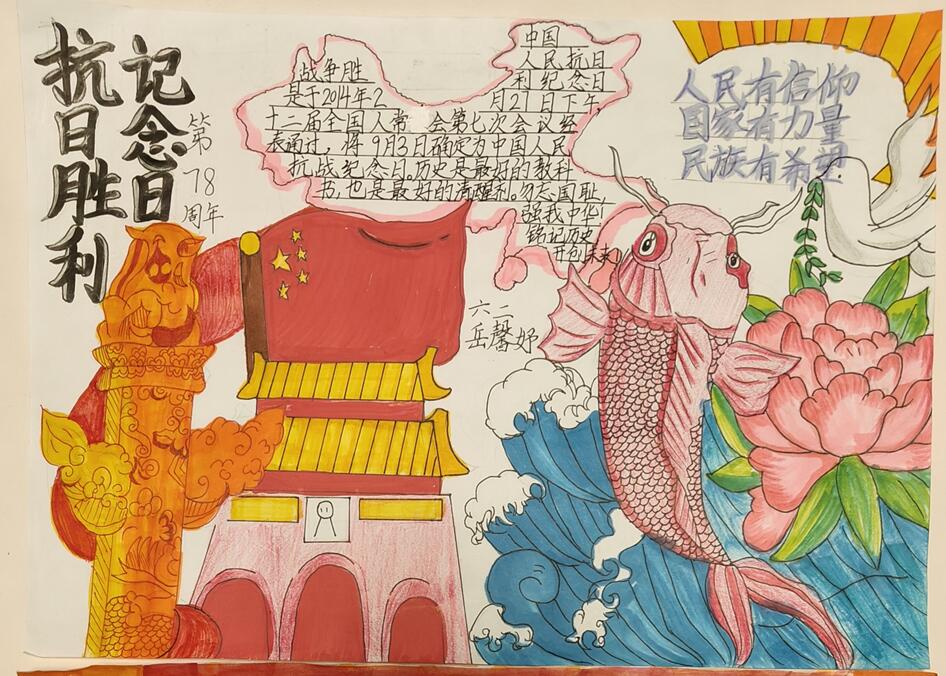 抗日胜利
记念日
第78周年
中国
人民抗日
战争胜
利纪念日
是于2014年2
月27日下午,
十二届全国人常
会第七次会议经
表通过,将9月3日确定为中国人民
抗战纪念日。历史是最好的教科
书,也是最好的清醒剂。勿忘国耻,
强我中华!
铭记历史
开创未来!
人民有信仰
国家有力量
民族有希望
六二
岳馨妤